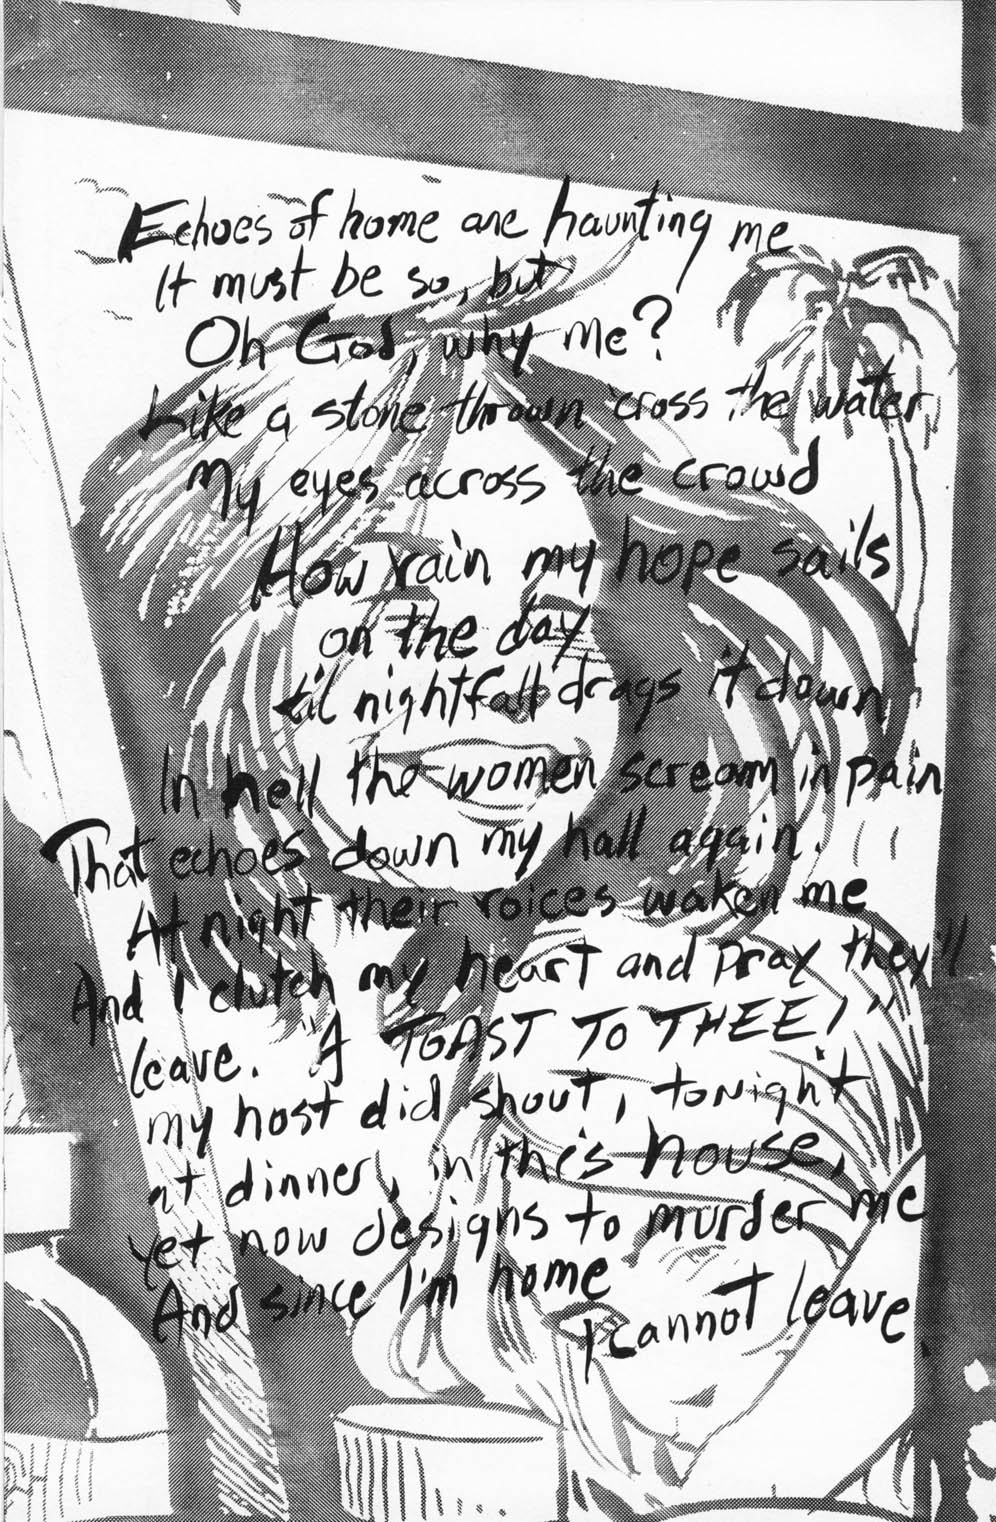 Echoes of home are haunting me
It must be so, but
Oh God, why me?
Like a stone thrown 'cross the water
My eyes across the crowd
How vain my hope sails
on the day
til nightfall drags it down
In hell the women scream in pain
That echoes down my hall again.
At night their voices waken me
And I clutch my heart and pray they'll
leave. "A TOAST TO THEE!"
my host did shout, tonight
at dinner, in this house,
yet now designs to murder me
And since I'm home
I cannot leave.